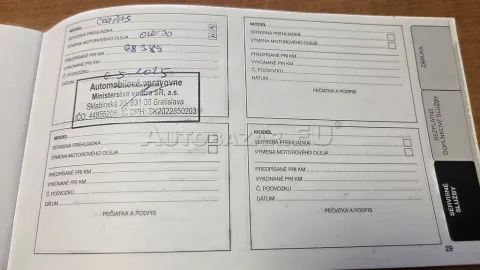 MODEL
SERVISNÁ PREHLIADKA OLEJ
VÝMENA MOTOROVÉHO OLEJA
PREDPÍSANÉ PRI KM 68 389
VYKONANÉ PRI KM
Č. PODVOZKU
DÁTUM 6.5.2025
Automobilové opravovne
Ministerstva vnútra SR, a.s.
Sklabinská 20, 831 06 Bratislava
MODEL
SERVISNÁ PREHLIADKA
VÝMENA MOTOROVÉHO OLEJA
PREDPÍSANÉ PRI KM
VYKONANÉ PRI KM
Č. PODVOZKU
DÁTUM
PEČIATKA A PODPIS
MODEL
SERVISNÁ PREHLIADKA
VÝMENA MOTOROVÉHO OLEJA
PREDPÍSANÉ PRI KM
VYKONANÉ PRI KM
Č. PODVOZKU
DÁTUM
PEČIATKA A PODPIS
MODEL
SERVISNÁ PREHLIADKA
VÝMENA MOTOROVÉHO OLEJA
PREDPÍSANÉ PRI KM
VYKONANÉ PRI KM
Č. PODVOZKU
DÁTUM
PEČIATKA A PODPIS
ZÁRUKA
BEZPLATNÉ
DOPLNKOVÉ SLUŽBY
SERVISNÉ
SLUŽBY
29
AUTOBAZAR.EU